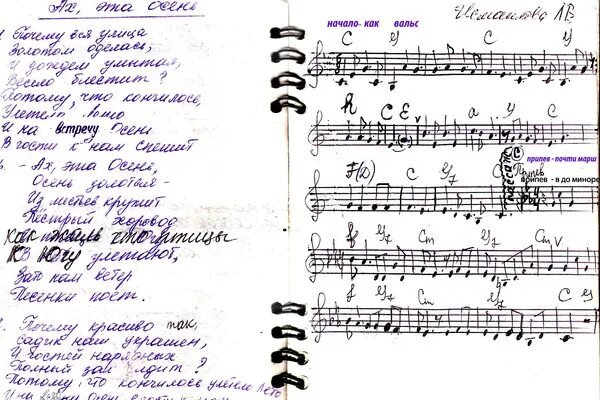 Ах, эта осень
1. Почему вся улица
Золотом оделась,
И дождем умытая,
Весело блестит?
Потому, что кончилось,
Улетело лето
И на встречу Осень
В гости к нам спешит
- Ах, эта Осень,
Осень золотые -
Из листьев кружит
Пестрый хоровод
как жаль что птицы
К Югу улетают,
Зато нам ветер
Песенки поет.
Почему красиво так,
Садик наш украшен,
И гостей нарядных
Полный зал сидит?
Потому, что кончилось улетело лето
начало- как вальс
Исмаилова Л.В
C G C G
h C E v a G C
припев - почти марш
Припев
припев - в до миноре
F(D) C G7 C
f G7 Cm G7 Cm v
f G7 Cm G7 C G